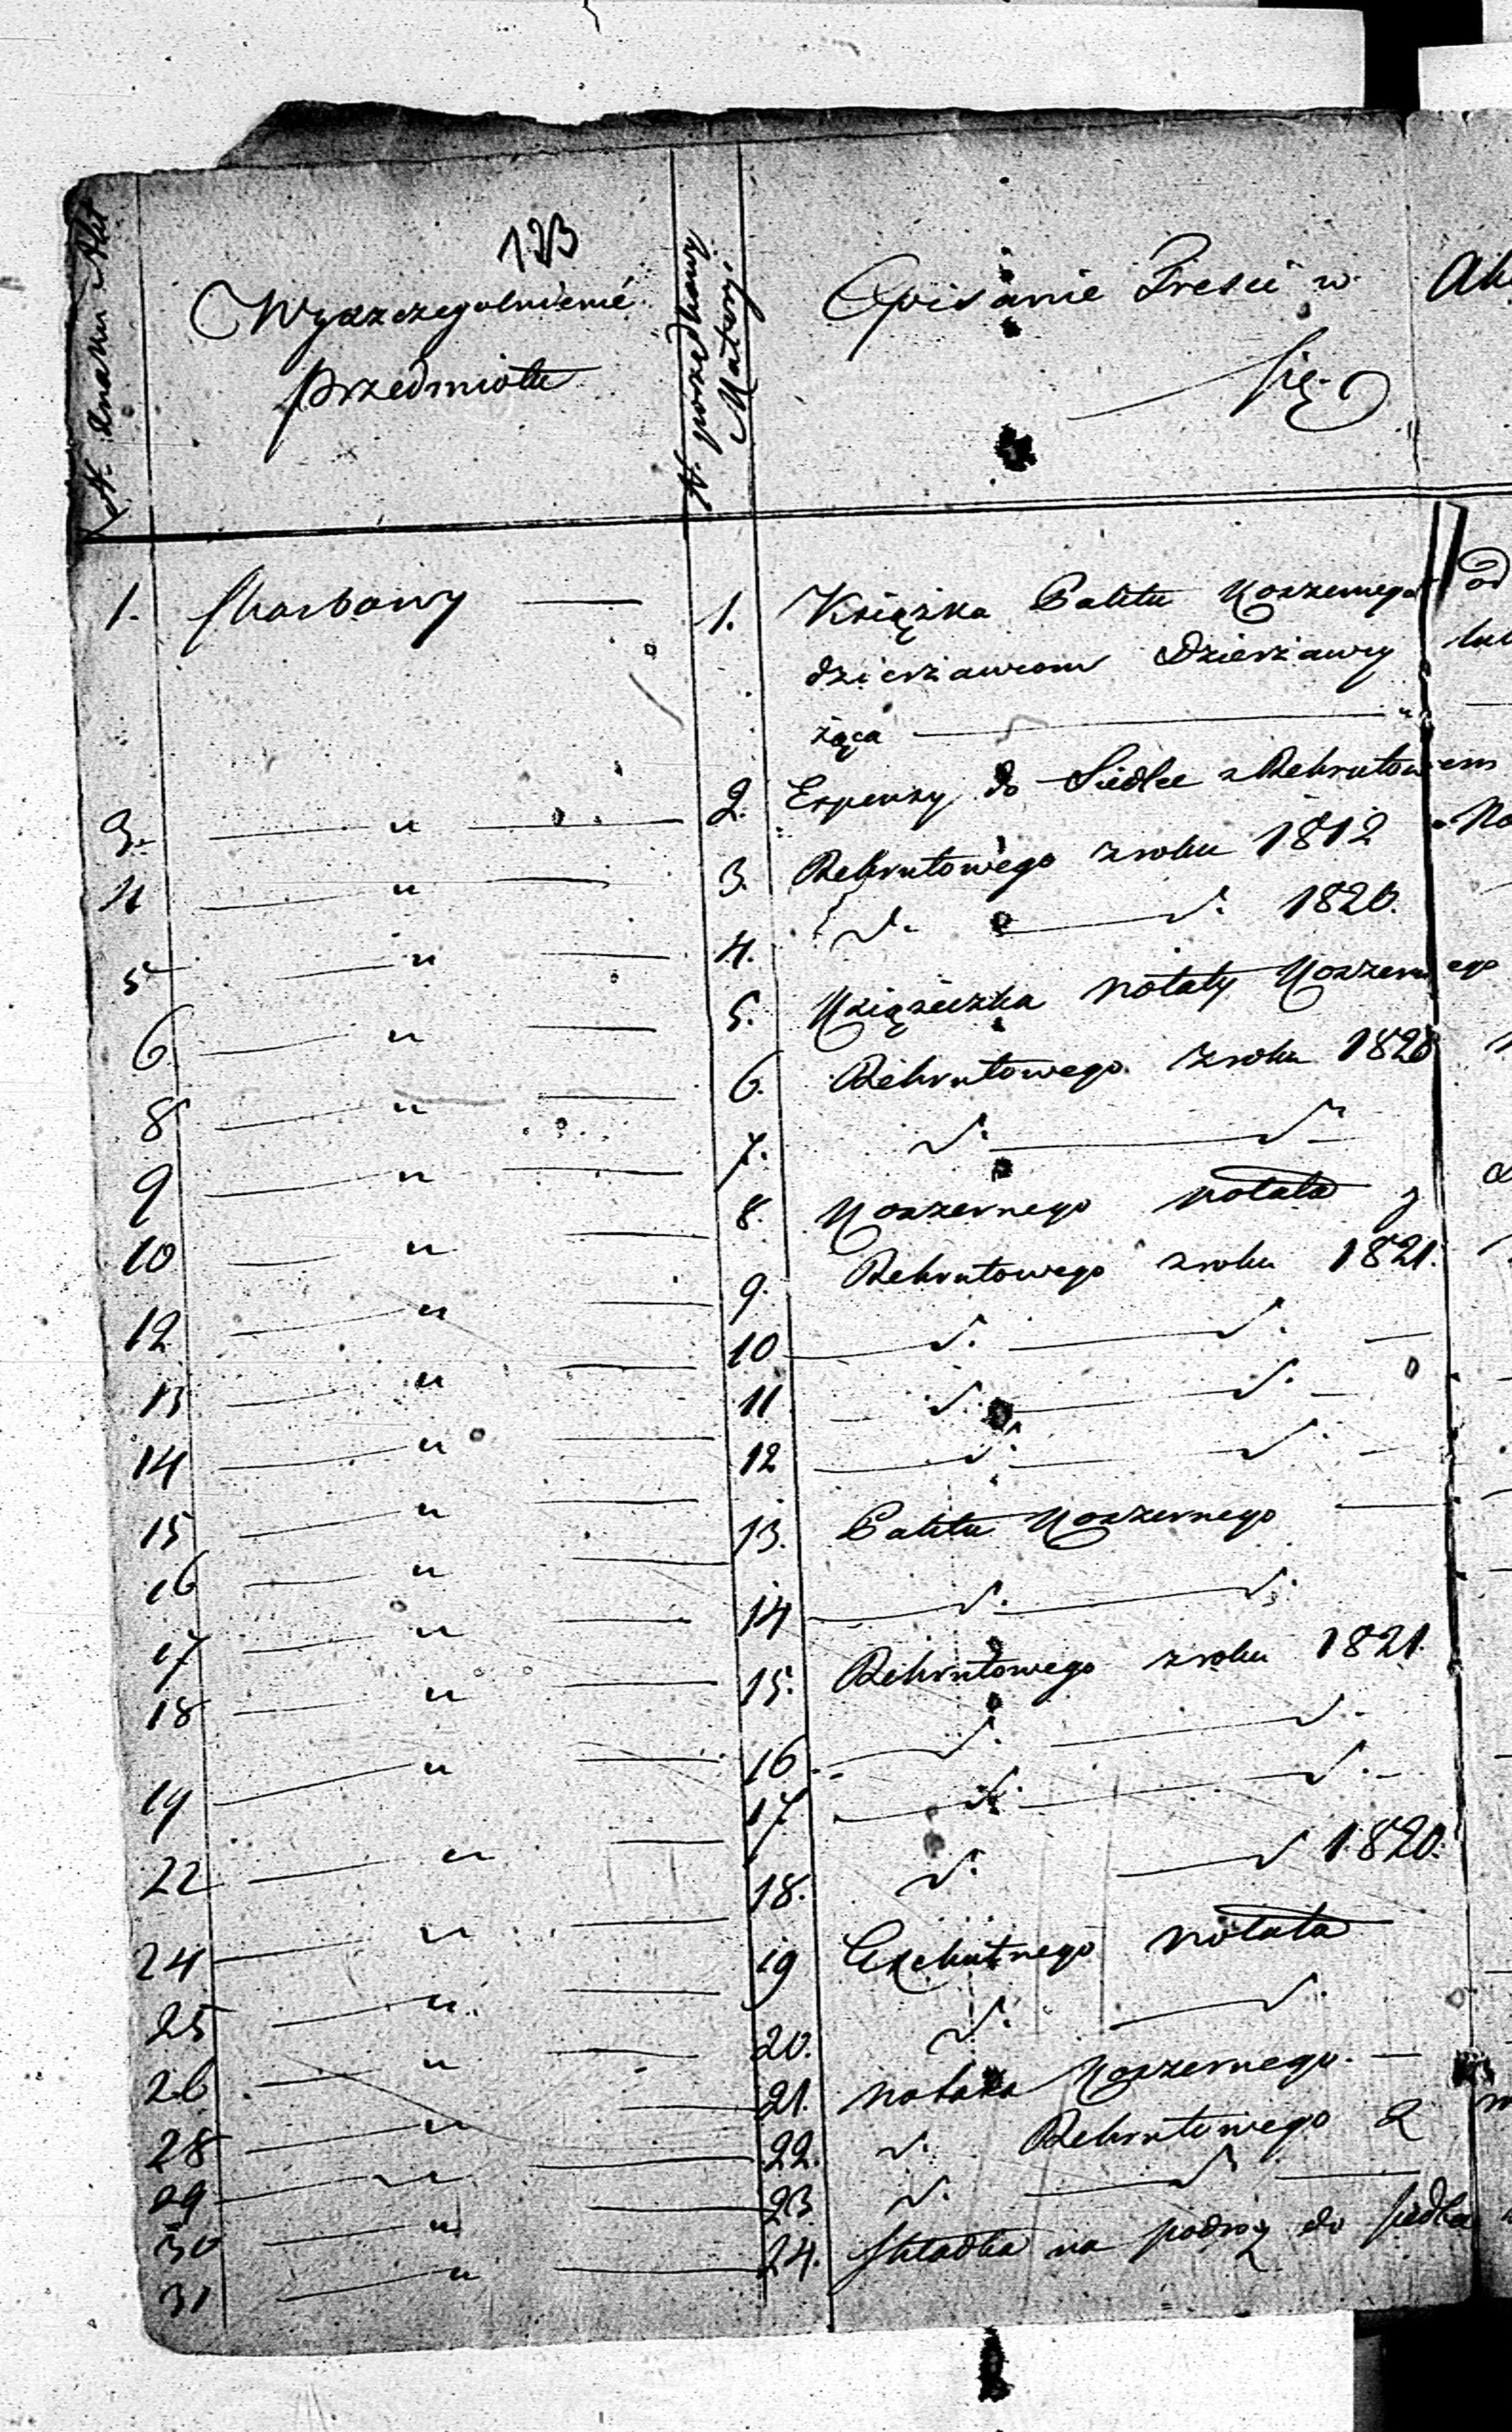 123
N. znaku Akt
Wyszczegolnienie
przedmiotu
N. porządkowy
Matery.
Opisanie Treści w
się
1. Skarbowy — 1. Książka Paletu Koszernego od
dzierżawcom Dzierżawy
żąca — "
3. — " — 2. Expensy do Siedlce z Rekrutowem
4 — " — 3. Rekrutowego z roku 1812
5 — " — 4. d. — d. 1820.
6 — " — 5. Książeczka notaty Koszernego
8 — " — 6. Rekrutowego z roku 1820
9 — " — 7. d. — d. —
10 — " — 8. Koszernego notata
12 — " — 9. Rekrutowego z roku 1821.
13 — " — 10 — d. — d. —
14 — " — 11 — d. — d. —
15 — " — 12 — d. — d. —
16 — " — 13. Paletu Koszernego —
17 — " — 14 — d. — d.
18 — " — 15. Rekrutowego z roku 1821.
19 — " — 16 — d. — d. —
22 — " — 17. — d. — d. —
24 — " — 18. d. — d 1820.
25 — " — 19 notata
26 — " — 20. d. — d.
28 — " — 21. notata Koszernego. —
29 — " — 22. d. Rekrutowego
30 — " — 23. d. — d. —
31 — " — 24. Składka na podroż do